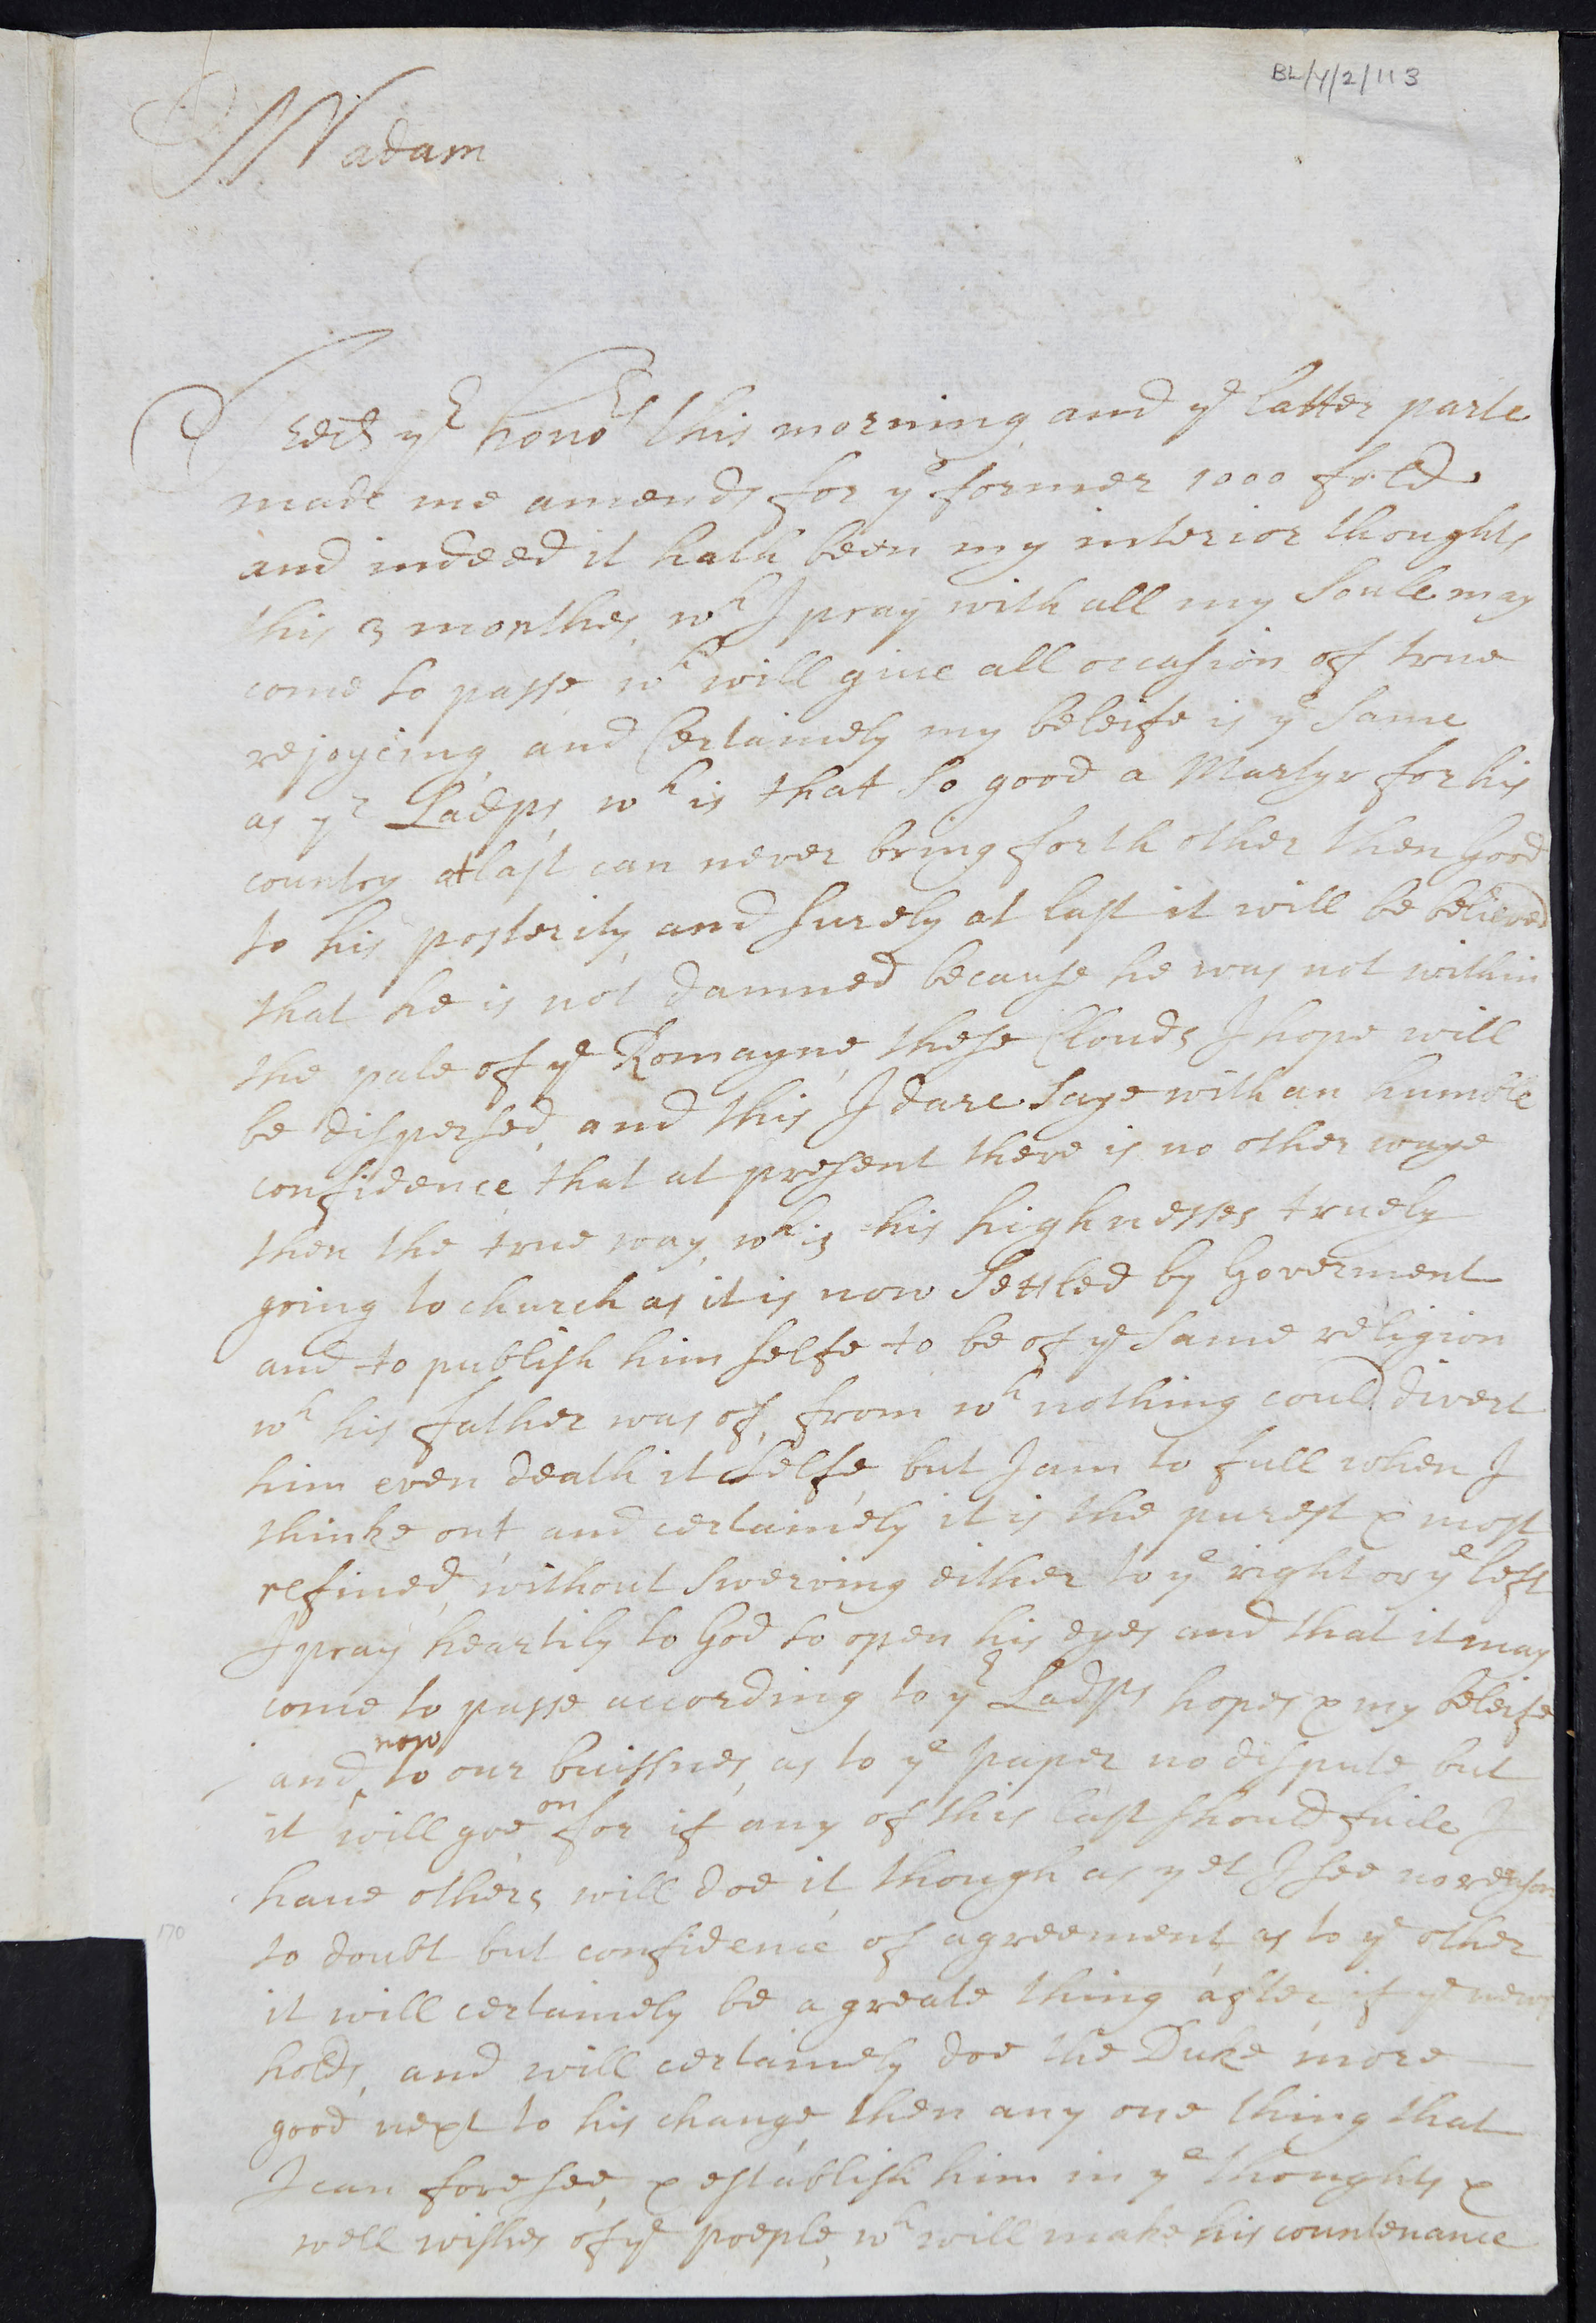 BL/Y/2/113
Madam
I Recd yr hono:r this morning, and ye latter parte
made me amends for ye former 1000 fold
and indeed it hath been my interior thoughts
this 3 monthes, wh I pray with all my Soule may
come to passe, wh will giue all occasion of true
rejoycing, and Certainely my beleife is ye Same
as yr Ladps, wh is that So good a Martyr for his
country atlast can never bring forth other then Good
to his posterity, and Surely at last it will be believed
that he is not damned because he was not within
the pale of ye Romayne, these Clouds I hope will
be dispersed, and this I dare Saye with an humble
confidence, that at present there is no other waye
then the true way, wh is his highnesses truely
going to church as it is now Settled by Goverment
and to publish him selfe to be of ye Same religion
wh his father was of, from wh nothing could divert
him even death it selfe, but I am to full when I
thinke ont, and certainely it is the purest & most
refined, without Swerving either to ye right or ye left
I pray heartily to God to open his eyes and that it may
come to passe according to yr Ladps hopes & my beleife
and now to our buissnes, as to ye paper no dispute but
it will goe on for if any of this last should faile I
haue others will doe it, though as yet I see no reason
to doubt but confidence of agreement, as to ye other
it will certainely be a greate thing after, if ye news
holds, and will certainely doe the Duke more
good next to his change, then any one thing that
I can foresee, & establish him in ye thoughts &
well wishes of ye poeple, wh will make his countenance
170